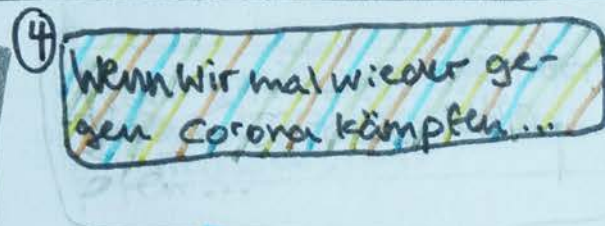 4
Wenn wir mal wieder ge-
gen Corona kämpfen...